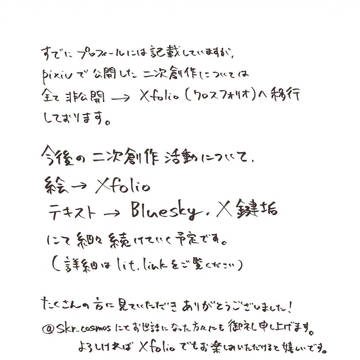 すでにプロフィールには記載していますが、
pixivで公開した二次創作については
全て非公開 → Xfolio(クロスフォリオ)へ移行
しております。
今後の二次創作活動について、
絵 → Xfolio
テキスト → Bluesky、X鍵垢
にて細々続けていく予定です。
(詳細はlit.linkをご覧ください)
たくさんの方に見ていただきありがとうございました!
@skr_cosmosにてお世話になった方々にも御礼申し上げます。
よろしければXfolioでもお楽しみいただけると嬉しいです。